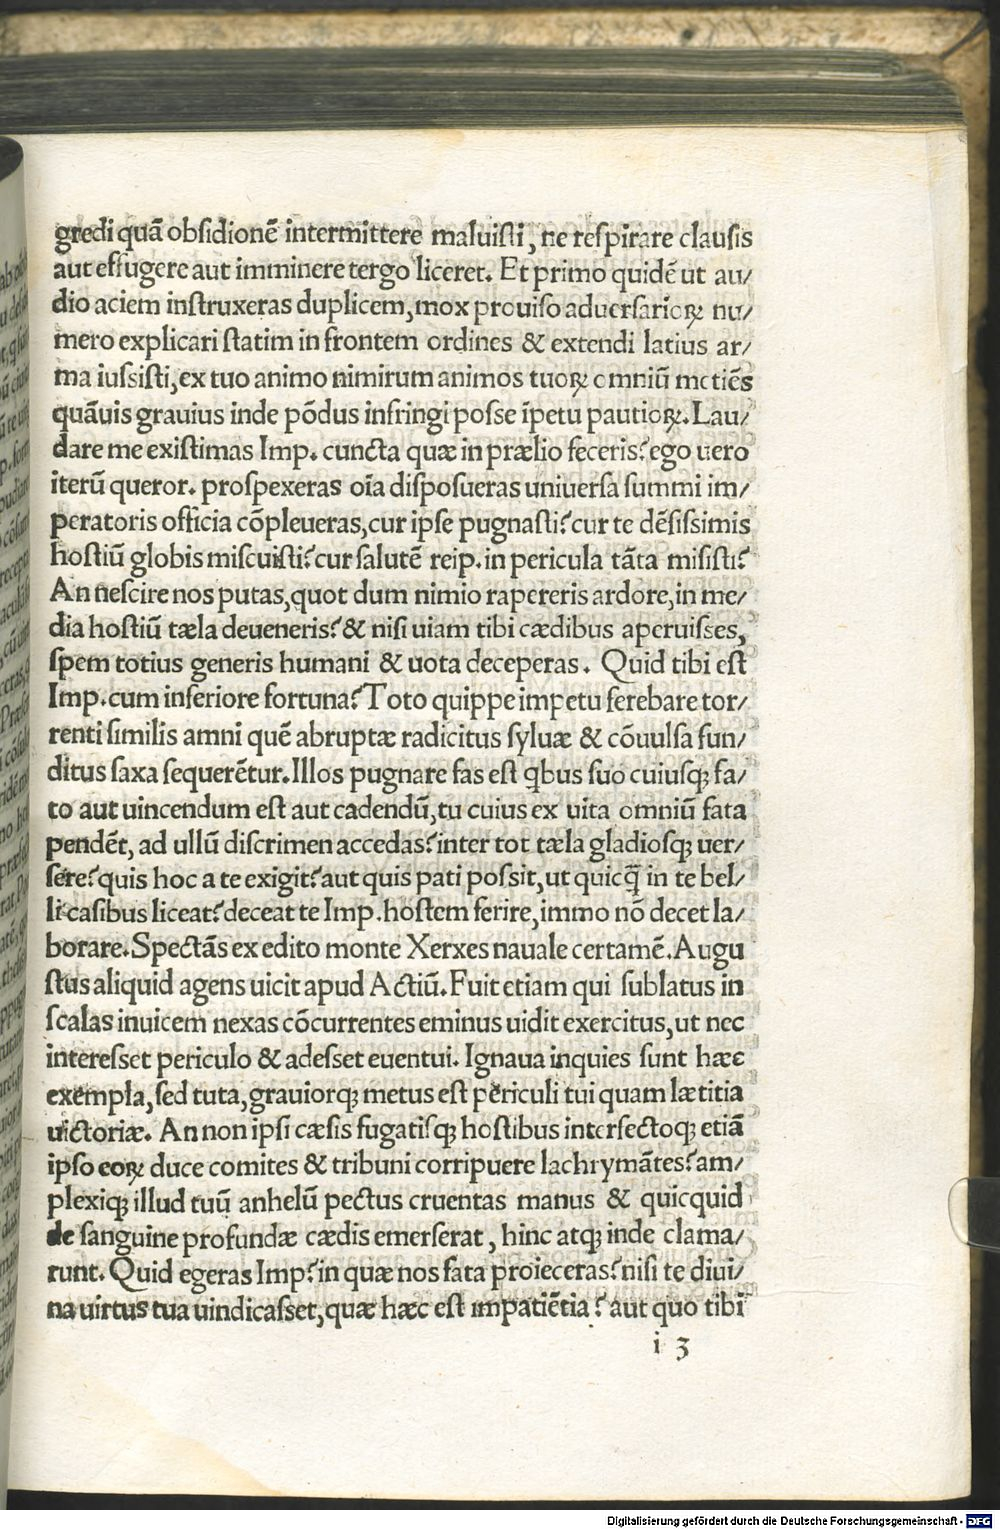 gredi quã obsidionẽ intermittere maluisti, ne respirare clausis
aut effugere aut imminere tergo liceret. Et primo quidẽ ut au/
dio aciem instruxeras duplicem, mox prouiso aduersarioꝝ nu/
mero explicari statim in frontem ordines & extendi latius ar/
ma iussisti, ex tuo animo nimirum animos tuoꝝ omniũ metiẽs
quãuis grauius inde põdus infringi posse ĩpetu pautioꝝ. Lau/
dare me existimas Imp. cuncta quæ in prælio feceris? ego uero
iterũ queror. prospexeras oĩa disposueras uniuersa summi im/
peratoris officia cõpleueras, cur ipse pugnasti? cur te dẽsissimis
hostiũ globis miscuisti? cur salutẽ reip. in pericula tãta misisti?
An nescire nos putas, quot dum nimio rapereris ardore, in me/
dia hostiũ tæla deueneris? & nisi uiam tibi cædibus aperuisses,
spem totius generis humani & uota deceperas. Quid tibi est
Imp. cum inferiore fortuna? Toto quippe impetu ferebare tor/
renti similis amni quẽ abruptæ radicitus syluæ & cõuulsa fun/
ditus saxa sequerẽtur. Illos pugnare fas est q̃bus suo cuiusqꝫ fa/
to aut uincendum est aut cadendũ, tu cuius ex uita omniũ fata
pendẽt, ad ullũ discrimen accedas? inter tot tæla gladiosqꝫ uer/
sere? quis hoc a te exigit? aut quis pati possit, ut quicq̃ in te bel/
li casibus liceat? deceat te Imp. hostem ferire, immo nõ decet la/
borare. Spectãs ex edito monte Xerxes nauale certamẽ. Augu
stus aliquid agens uicit apud Actiũ. Fuit etiam qui sublatus in
scalas inuicem nexas cõcurrentes eminus uidit exercitus, ut nec
interesset periculo & adesset euentui. Ignaua inquies sunt hæc
exempla, sed tuta, grauiorqꝫ metus est periculi tui quam lætitia
uictoriæ. An non ipsi cæsis fugatisqꝫ hostibus intersectoqꝫ etiã
ipso eoꝝ duce comites & tribuni corripuere lachrymãtes? am/
plexiqꝫ illud tuũ anhelũ pectus cruentas manus & quicquid
de sanguine profundæ cædis emerserat, hinc atqꝫ inde clama/
runt. Quid egeras Imp? in quæ nos fata proieceras? nisi te diui/
na uirtus tua uindicasset, quæ hæc est impatiẽtia? aut quo tibi
i 3
Digitalisierung gefördert durch die Deutsche Forschungsgemeinschaft - DFG